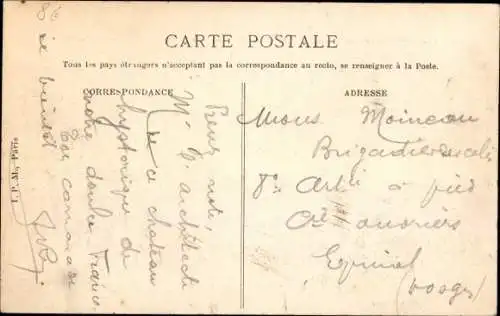 86
CARTE POSTALE
Tous les pays étrangers n'acceptant pas la correspondance au recto, se renseigner à la Poste.
CORRESPONDANCE
ADRESSE
I. P. Paris
Prenez note,
Mr l'architecte
de ce chateau
hystorique de
notre douce France
Ton camarade
se bientôt
Mons Moineau
Brigadier
8e Artie à pied
Cie ouvriers
Epinal
(Vosges)